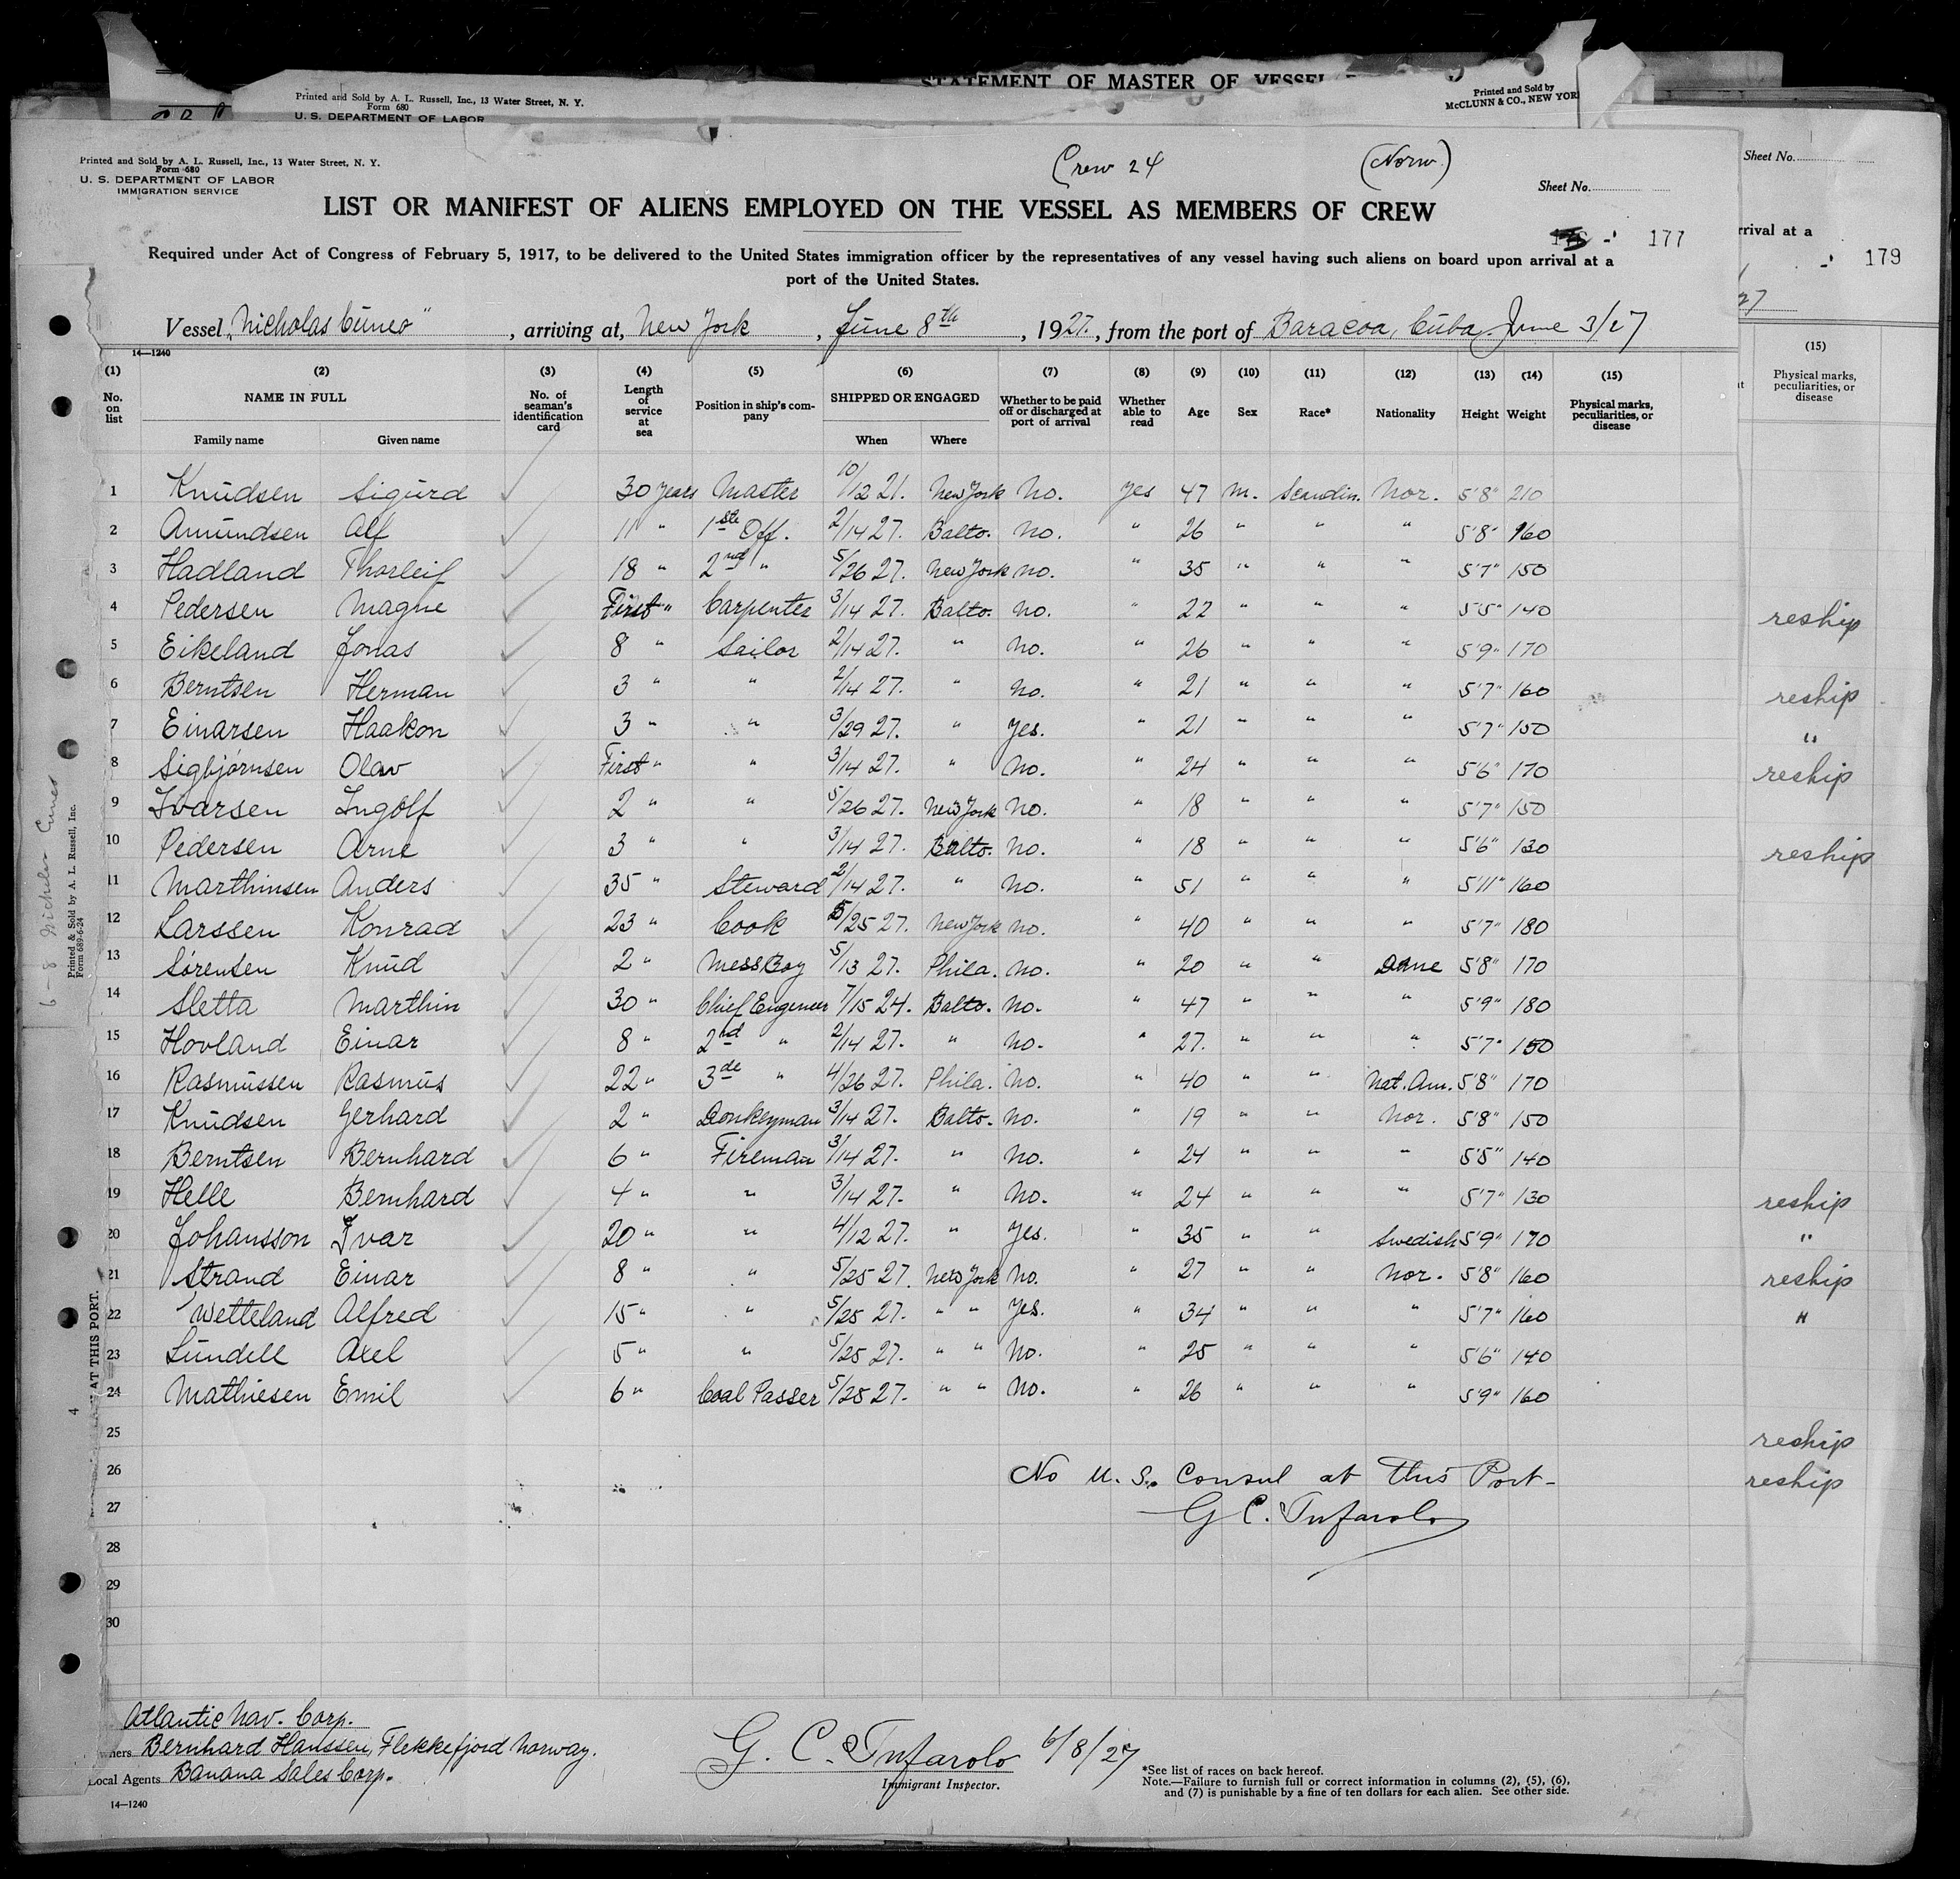 STATEMENT OF MASTER OF VESSEL
Printed and Sold by A. L. Russell, Inc., 13 Water Street, N. Y.
Form 680
U. S. DEPARTMENT OF LABOR
Printed and Sold by
McCLUNN & CO., NEW YORK
Printed and Sold by A. L. Russell, Inc., 13 Water Street, N. Y.
Form 680
U. S. DEPARTMENT OF LABOR
IMMIGRATION SERVICE
Crew 24
(Norw.)
Sheet No.
Sheet No.
LIST OR MANIFEST OF ALIENS EMPLOYED ON THE VESSEL AS MEMBERS OF CREW
177
rrival at a
179
27
Required under Act of Congress of February 5, 1917, to be delivered to the United States immigration officer by the representatives of any vessel having such aliens on board upon arrival at a
port of the United States.
Vessel "Nicholas Cuneo", arriving at, New York, June 8th, 1927, from the port of Baracoa, Cuba, June 3/27
14—1240
(1) (2) (3) (4) (5) (6) (7) (8) (9) (10) (11) (12) (13) (14) (15)
No. on list
NAME IN FULL
Family name Given name
No. of seaman's identification card
Length of service at sea
Position in ship's company
SHIPPED OR ENGAGED
When Where
Whether to be paid off or discharged at port of arrival
Whether able to read
Age
Sex
Race*
Nationality
Height
Weight
Physical marks, peculiarities, or disease
(15)
Physical marks, peculiarities, or disease
1 Knudsen Sigurd 30 years Master 10/12 21. New York No. yes 47 m. Scandin. Nor. 5'8" 210
2 Amundsen Alf 11 " 1ste Off. 2/14 27. Balto. No. " 26 " " " 5'8" 160
3 Hadland Thorleif 18 " 2nd " 5/26 27. New York No. " 35 " " " 5'7" 150
4 Pedersen Magne First " Carpenter 3/14 27. Balto. No. " 22 " " " 5'5" 140
reship
5 Eikeland Jonas 8 " Sailor 2/14 27. " No. " 26 " " " 5'9" 170
6 Berntsen Herman 3 " " 2/14 27. " No. " 21 " " " 5'7" 160
reship
7 Einarsen Haakon 3 " " 3/29 27. " Yes. " 21 " " " 5'7" 150
"
8 Sigbjørnsen Olav First " " 3/14 27. " No. " 24 " " " 5'6" 170
reship
9 Ivarsen Ingolf 2 " " 5/26 27. New York No. " 18 " " " 5'7" 150
10 Pedersen Arne 3 " " 3/14 27. Balto. No. " 18 " " " 5'6" 130
reship
11 Marthinsen Anders 35 " Steward 2/14 27. " No. " 51 " " " 5'11" 160
12 Larssen Konrad 23 " Cook 5/25 27. New York No. " 40 " " " 5'7" 180
13 Sørensen Knud 2 " Mess Boy 5/13 27. Phila. No. " 20 " " Dane 5'8" 170
14 Sletta Marthin 30 " Chief Engeneer 7/15 24. Balto. No. " 47 " " " 5'9" 180
15 Hovland Einar 8 " 2nd " 2/14 27. " No. " 27. " " " 5'7" 150
16 Rasmussen Rasmus 22 " 3de " 4/26 27. Phila. No. " 40 " " Nat. Am. 5'8" 170
17 Knudsen Gerhard 2 " Donkeyman 3/14 27. Balto. No. " 19 " " Nor. 5'8" 150
18 Berntsen Bernhard 6 " Fireman 3/14 27. " No. " 24 " " " 5'5" 140
19 Helle Bernhard 4 " " 3/14 27. " No. " 24 " " " 5'7" 130
reship
20 Johansson Ivar 20 " " 4/12 27. " Yes. " 35 " " Swedish 5'9" 170
"
21 Strand Einar 8 " " 5/25 27. New York No. " 27 " " Nor. 5'8" 160
reship
22 Wetteland Alfred 15 " " 5/25 27. " " Yes. " 34 " " " 5'7" 160
"
23 Lundell Axel 5 " " 5/25 27. " " No. " 25 " " " 5'6" 140
24 Mathiesen Emil 6 " Coal Passer 5/25 27. " " No. " 26 " " " 5'9" 160
25
reship
26 No U. S. Consul at this Port—
reship
27 G C. Tufarolo
28
29
30
6-8 Nicholas Cuneo
Printed & Sold by A. L. Russell, Inc.
Form 689-6-24
AT THIS PORT.
4
Atlantic Nav. Corp.
Owners Bernhard Hanssen, Flekkefjord Norway.
Local Agents Banana Sales Corp.
14—1240
G. C. Tufarolo 6/8/27
Immigrant Inspector.
*See list of races on back hereof.
Note.—Failure to furnish full or correct information in columns (2), (5), (6),
and (7) is punishable by a fine of ten dollars for each alien. See other side.